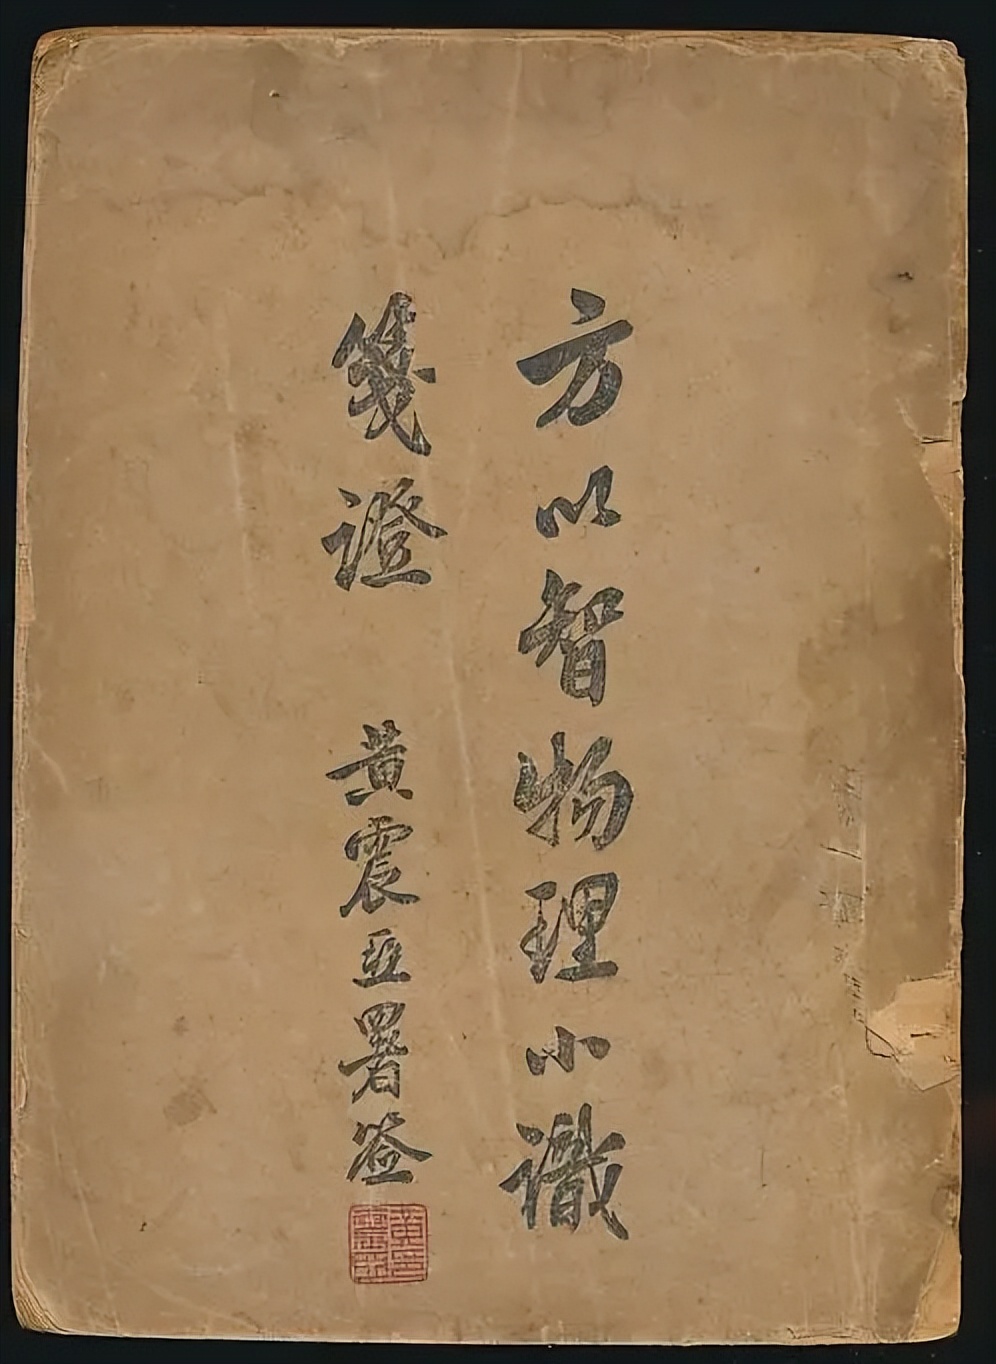 方以智物理小識
箋證
黃震亞署签